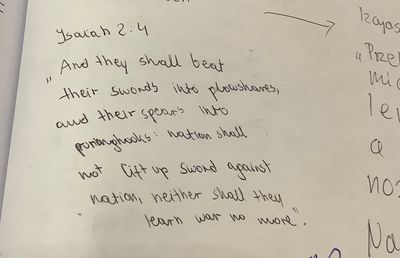 Ysaiah 2:4
„And they shall beat
their swords into plowshares,
and their spears into
pruninghooks: nation shall
not lift up sword against
nation, neither shall they
learn war no more".
Izajos
„Przek
mie
le
a
no
Na